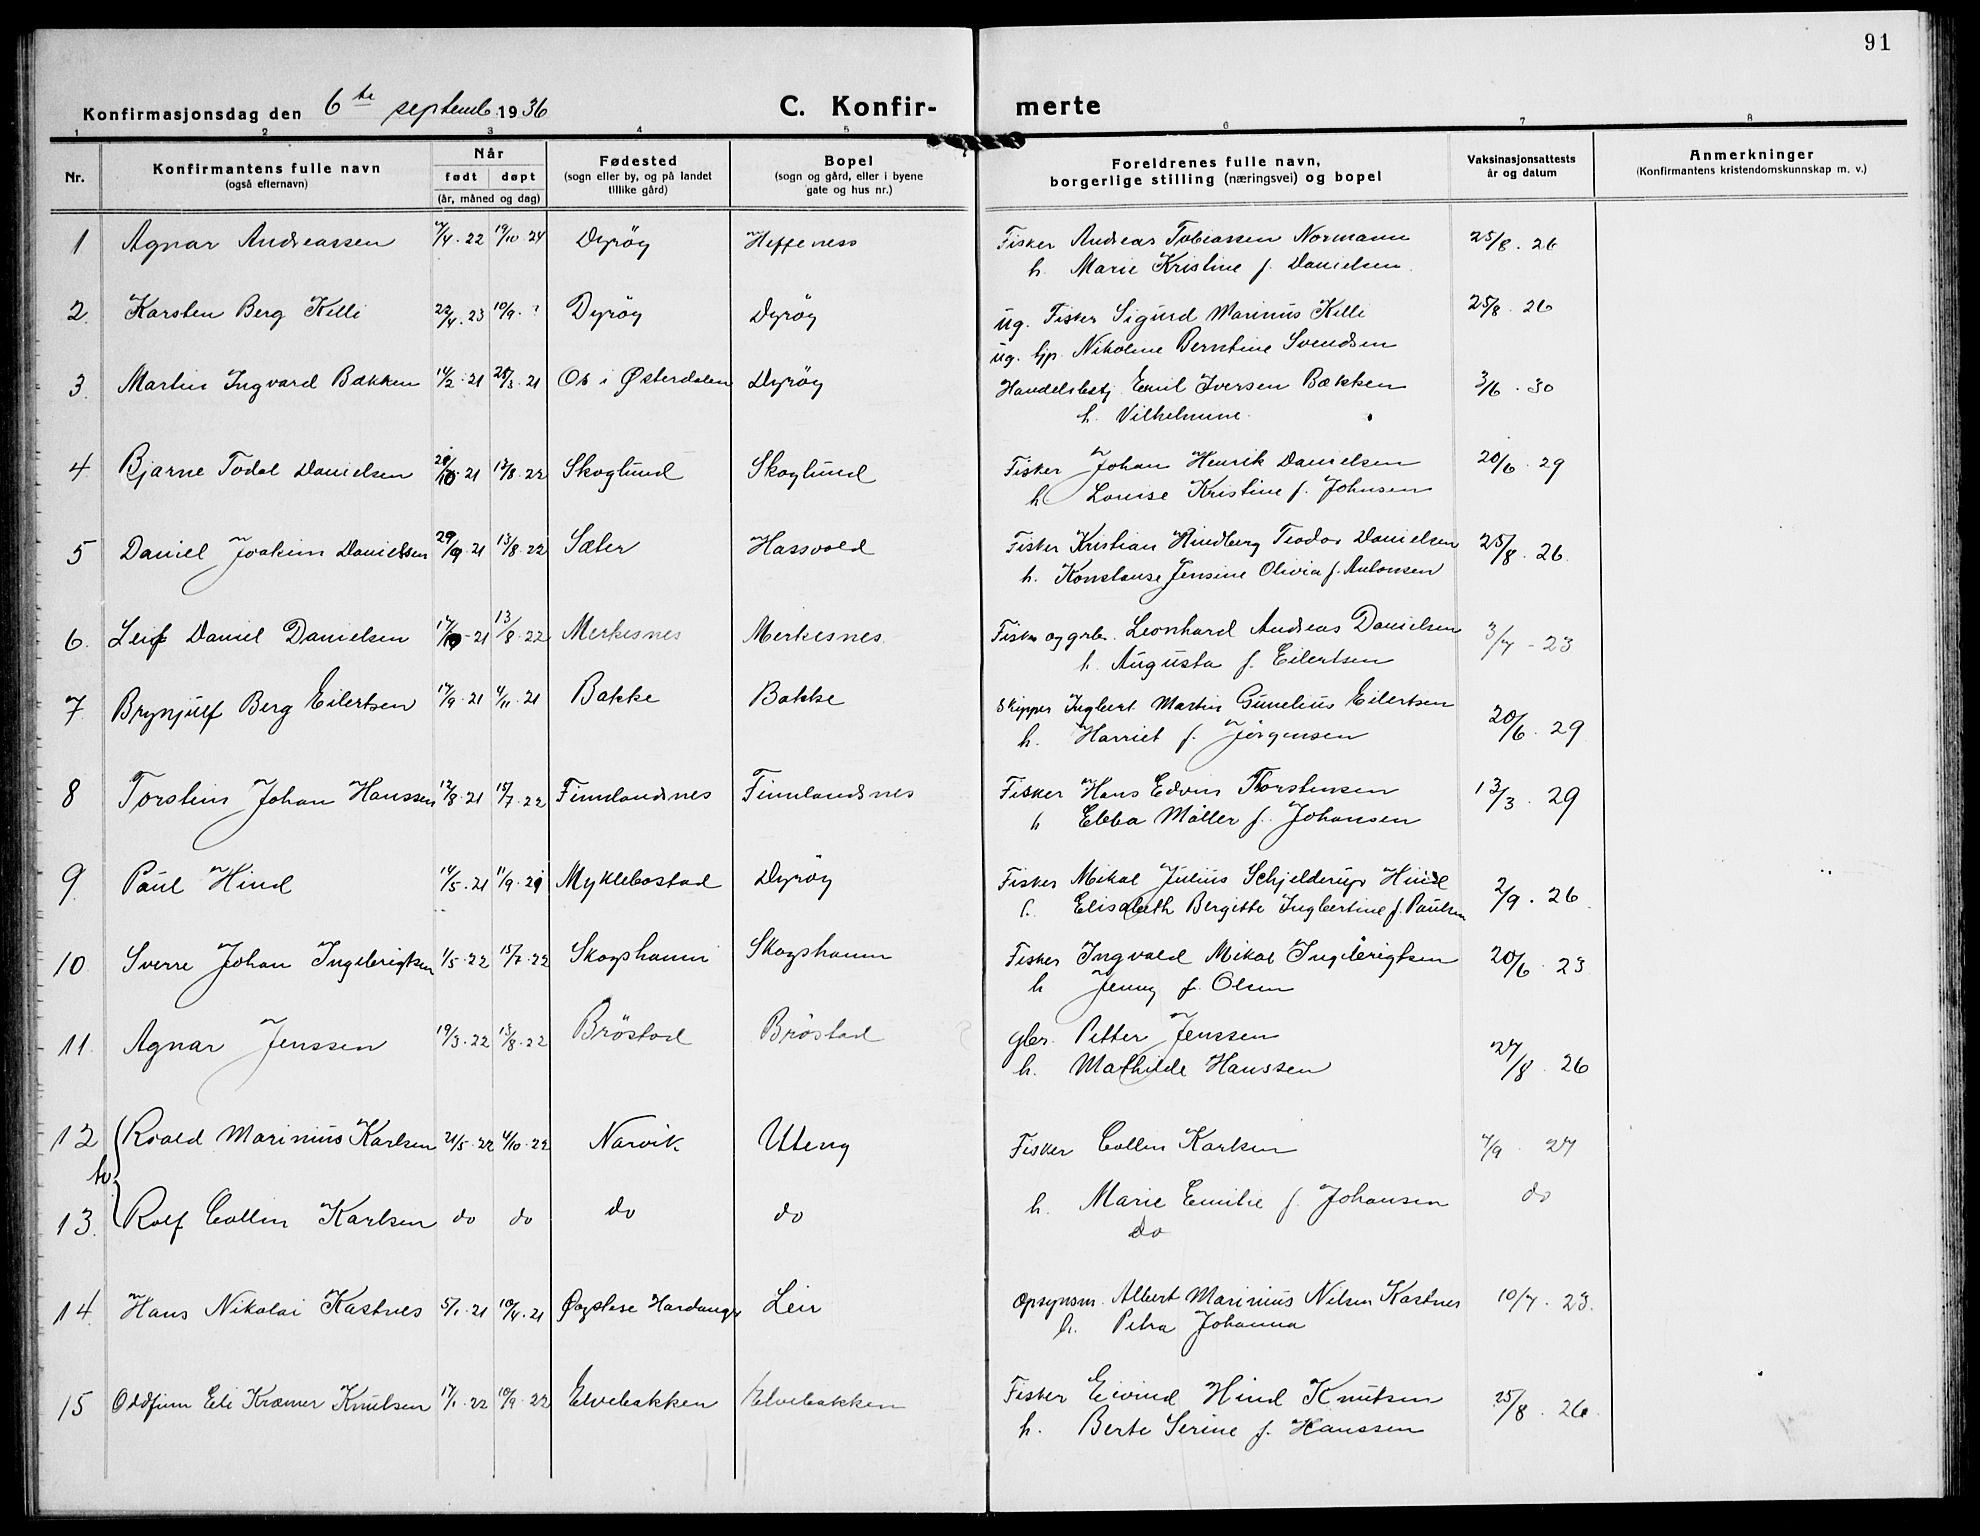 91
Konfirmasjonsdag den 6te septemb 1936 C. Konfir- merte
1 2 3 4 5 6 7 8
Nr. Konfirmantens fulle navn (også efternavn) Når født døpt (år, måned og dag) Fødested (sogn eller by, og på landet tillike gård) Bopel (sogn og gård, eller i byene gate og hus nr.) Foreldrenes fulle navn, borgerlige stilling (næringsvei) og bopel Vaksinasjonsattests år og datum Anmerkninger (Konfirmantens kristendomskunnskap m. v.)
1 Agnar Andreassen 7/4.22 19/10 24 Dyröy Heffeness Fisker Andreas Tobiassen Normann 25/8.26
h. Marie Kristine f. Danielsen.
2. Karsten Berg Killi 22/4.23 10/9.? Dyröy Dyröy ug. Fisker Sigurd Marinus Killi 25/8.26
ug. hjp. Nikoline Berntine Svendsen
3. Martin Ingvard Bækken 14/2.21 28/3.21 Os i Østerdalen Dyröy Handelsbetj. Emil Iversen Bækken 3/6.30
h. Vilhelmine.
4. Bjarne Todal Danielsen 29/10 21 13/8.22 Skoglund Skoglund Fisker Johan Henrik Danielsen 20/6.29
h Louise Kristine f. Johnsen
5 Daniel Joakim Danielsen 29/9.21 13/8.22 Sæter Hassvold Fisker Kristian Hindberg Teodor Danielsen 25/8.26.
h. Konstanse Jensine Olivia f. Antonsen
6. Leif Daniel Danielsen 17/10-21 13/8.22 Merkesnes Merkesnes Fisker og grbr. Leonhard Andreas Danielsen 3/7-23
h. Augusta f. Eilertsen
7. Brynjulf Berg Eilertsen 17/9.21 4/11.21 Bakke Bakke Skipper Ingbert Martin Gunelius Eilertsen 20/6.29
h. Harriet f. Jörgensen
8 Torstein Johan Hanssen 12/8.21 15/7.22 Finnlandsnes Finnlandsnes Fisker Hans Edvin Thorstensen 13/3.29
h Ebba Möller f. Johansen
9. Paul Hind 14/5.21 11/9.21 Myklebostad Dyröy Fisker Mikal Julius Schjelderup Hind 2/9.26
h. Elisabeth Bergitte Ingbertine f. Paulsen
10 Sverre Johan Ingebrigtsen 1/5.22 15/7.22 Skogshamn Skogshamn Fisker Ingvald Mikal Ingebrigtsen 20/6.23
h Jenny f. Olsen
11. Agnar Jenssen 19/3.22 13/8.22 Bröstad Bröstad gbr. Petter Jenssen 27/8.26
h. Mathilde Hanssen
12 Roald Marinius Karlsen 21/5.22 4/10.22 Narvik Uteng Fisker Collin Karlsen 7/9.27
tv. h. Marie Emilie f. Johansen do
13. Rolf Collin Karlsen do do do do do
14. Hans Nikolai Kastnes 5/1.21 10/4.21 Øystese Hardanger Leir Opsynsm. Albert Marinius Nilsen Kastnes 10/7.23.
h. Petra Johanna
15 Oddfinn Eli Kræmer Knutsen 17/1.22 10/9.22 Elvebakken Elvebakken Fisker Eivind Hind Knutsen 25/8.26.
h. Berte Serine f. Hanssen